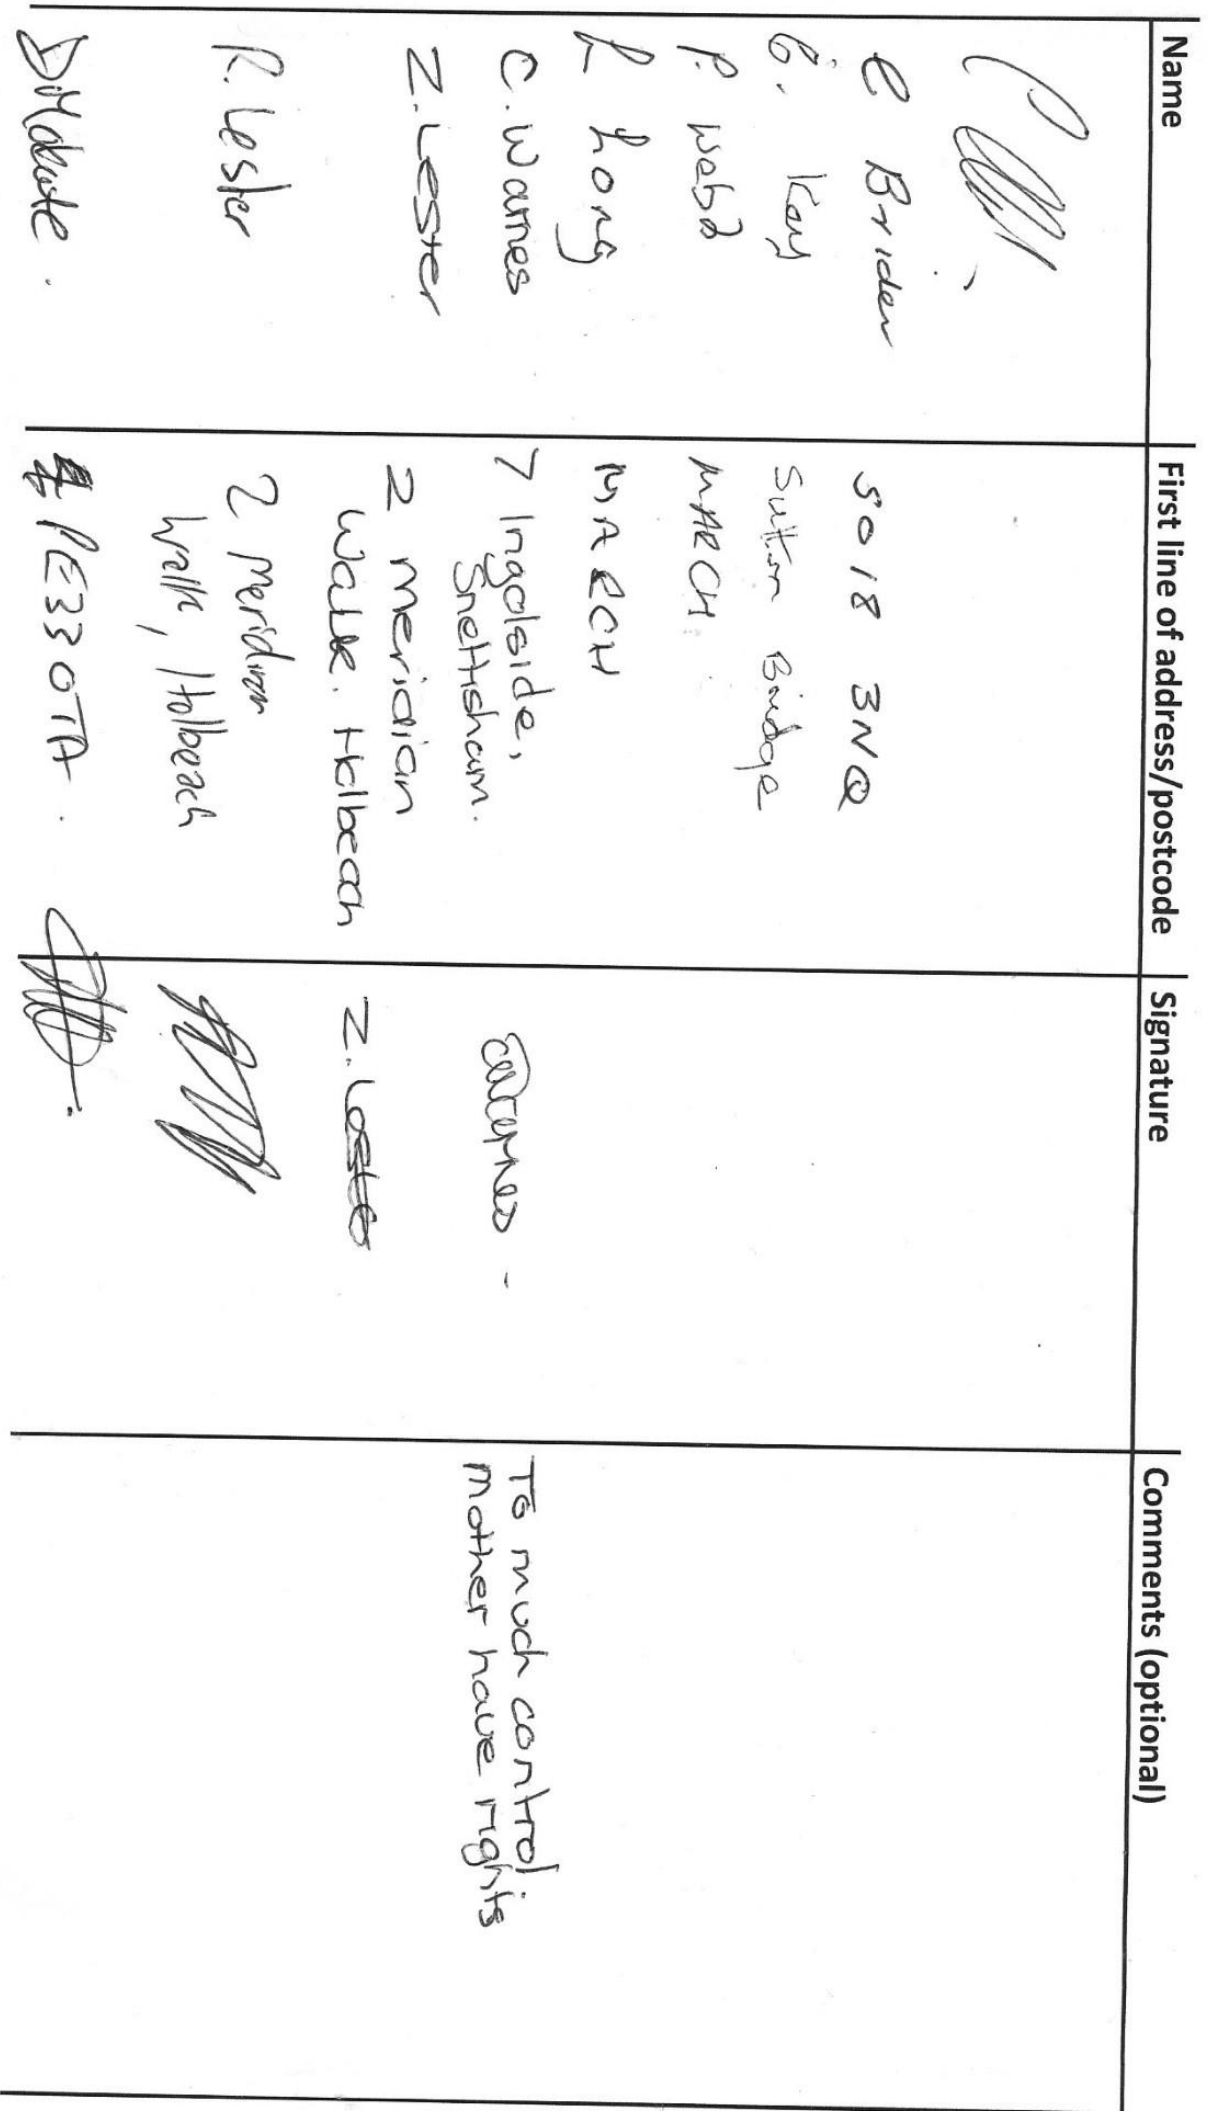 Name First line of address/postcode Signature Comments (optional)
C Briden SO18 3NQ
G. Kay Sutton Bridge
P. Webb MARCH
R Long MARCH
C. Warnes 7 Ingolside, To much control
Snettisham. mother have rights
Z. Lester 2 meridian
Walk. Holbeach Z. Lester
R. Lester 2 Meridian
Walk, Holbeach
PE33 0TA.